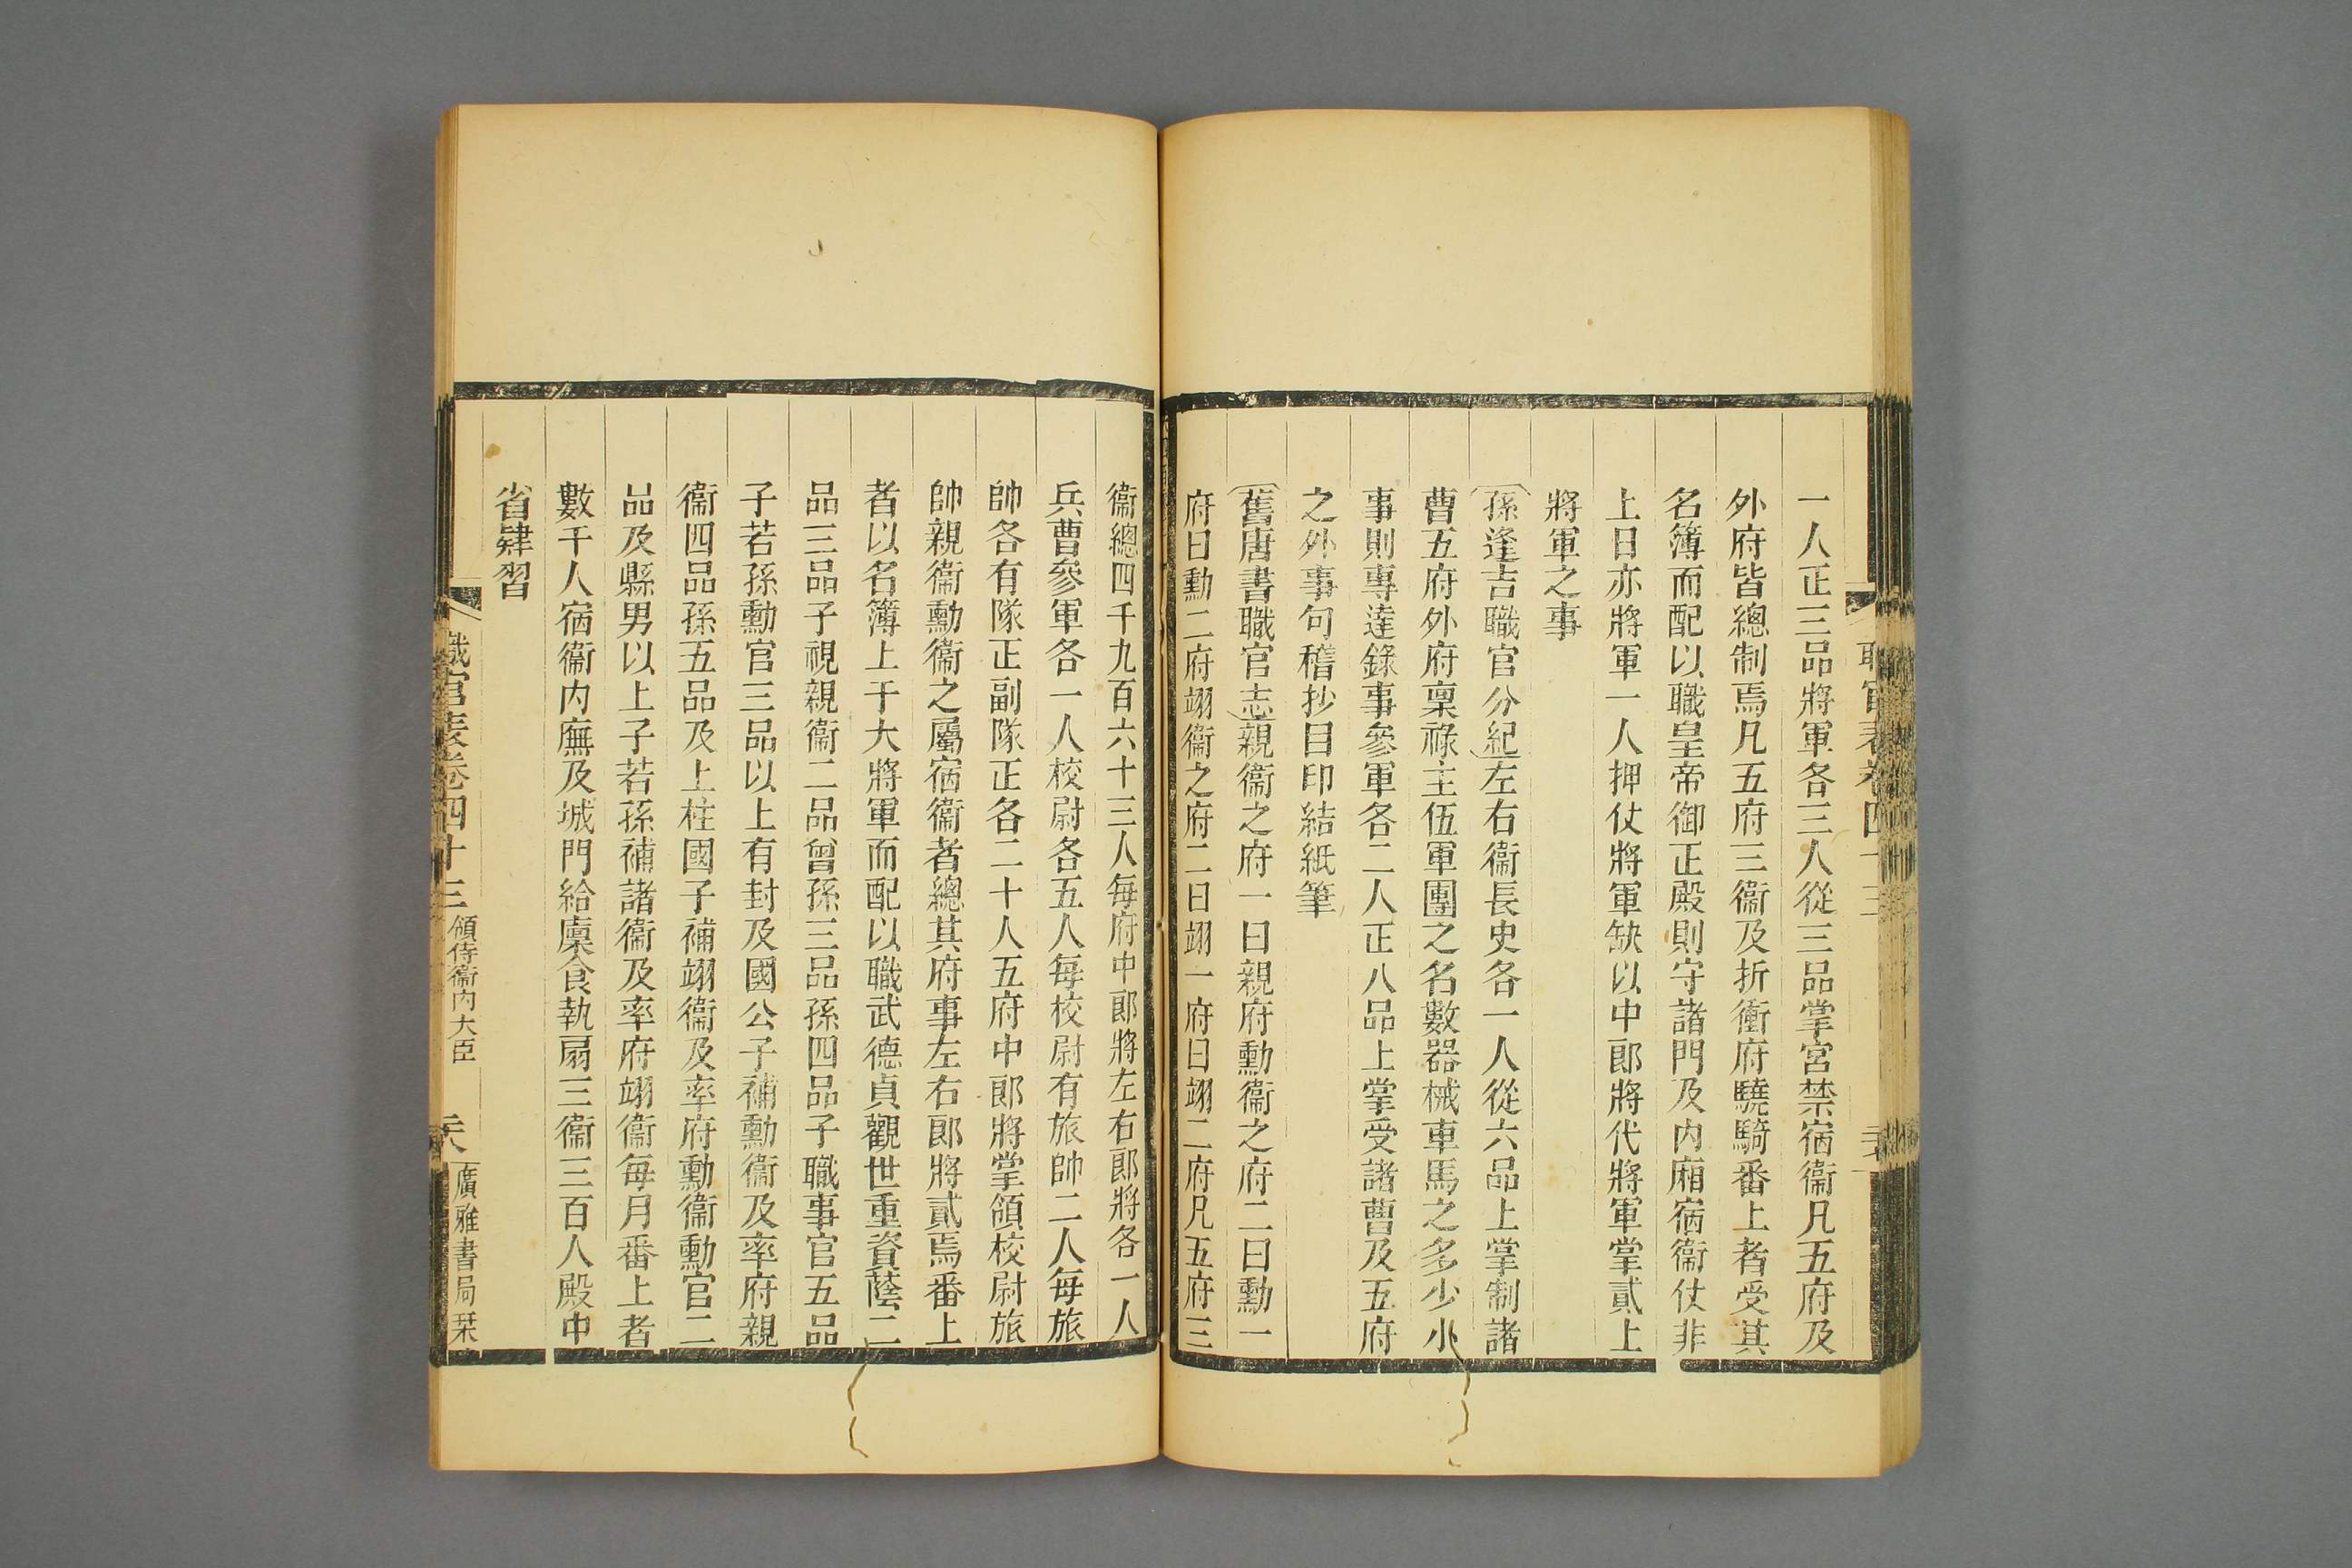 一人正三品將軍各三人從三品掌宮禁宿衞凡五府及
外府皆總制焉凡五府三衞及折衝府驍騎番上者受其
名簿而配以職皇帝御正殿則守諸門及內廂宿衞仗非
上日亦將軍一人押仗將軍缺以中郎將代將軍掌貳上
將軍之事
孫逢吉職官分紀左右衞長史各一人從六品上掌制諸
曹五府外府稟祿主伍軍團之名數器械車馬之多少小
事則專達錄事參軍各二人正八品上掌受諸曹及五府
之外事句稽抄目印結紙筆
舊唐書職官志親衞之府一曰親府勳衞之府二曰勳一
府曰勳二府翊衞之府二曰翊一府曰翊二府凡五府三
衞總四千九百六十三人每府中郎將左右郎將各一人
兵曹參軍各一人校尉各五人每校尉有旅帥二人每旅
帥各有隊正副隊正各二十人五府中郎將掌領校尉旅
帥親衞勳衞之屬宿衞者總其府事左右郎將貳焉番上
者以名簿上于大將軍而配以職武德貞觀世重資蔭二
品三品子視親衞二品曾孫三品孫四品子職事官五品
子若孫勳官三品以上有封及國公子補勳衞及率府親
衞四品孫五品及上柱國子補翊衞及率府勳衞勳官二
品及縣男以上子若孫補諸衞及率府翊衞每月番上者
數千人宿衞內廡及城門給廩食執扇三衞三百人殿中
省肄習
職官表卷四十三 領侍衞內大臣 廣雅書局栞